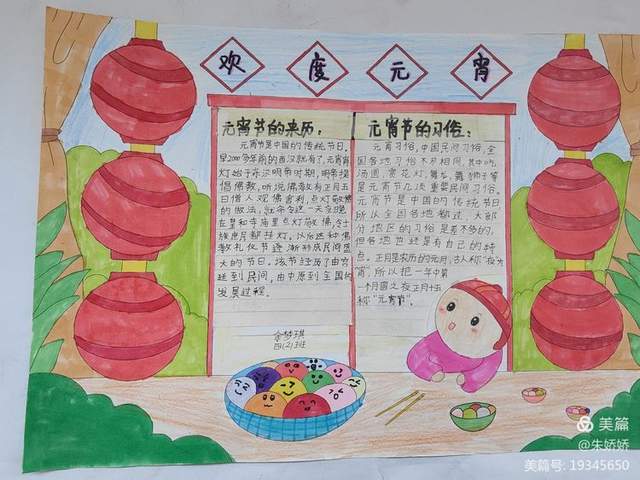 欢度元宵
元宵节的来历:
元宵节是中国的传统节日,
早2000多年前的西汉就有了,元宵赏
灯始于东汉明帝时期,明帝提
倡佛教,听说佛教有正月五
日僧人观佛舍利,点灯敬佛
的做法,就命令这一天夜晚
在皇和寺庙里点灯敬佛,令士
族庶民都挂灯。以后这种佛
教礼仪节逐渐形成民间盛
大的节日。该节经历了由宫
廷到民间,由中原到全国的
发展过程。
余梦琪
四(2)班
元宵节的习俗:
元宵习俗,中国民间习俗,全
国各地习俗不尽相同,其中吃
汤圆、赏花灯、舞龙、舞狮子等
是元宵节几项重要民间习俗。
元宵节是中国的传统节日,
所以全国各地都过,大部
分地区的习俗是差不多的,
但各地也还是有自己的特
点。正月是农历的元月,古人称"夜为
宵",所以把一年中第
一个月圆之夜正月十五
称"元宵节"。
美篇
@朱娇娇
美篇号: 19345650